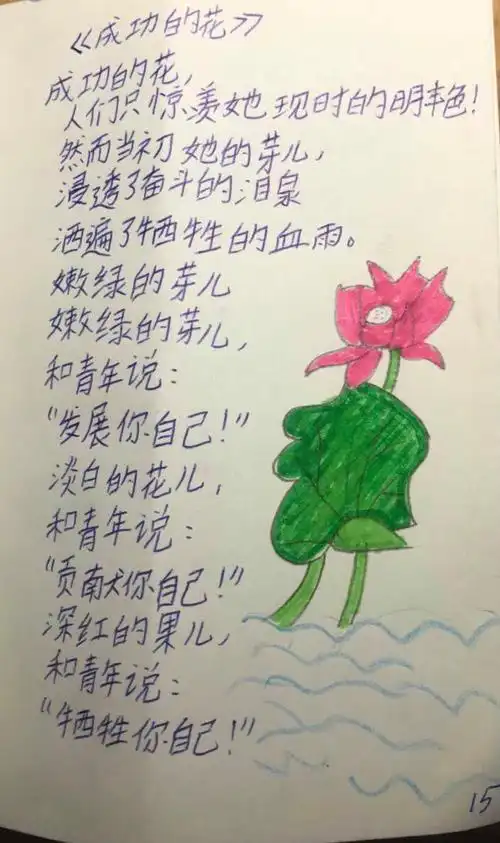 《成功的花》
成功的花，
人们只惊羡她现时的明丰色！
然而当初她的芽儿，
浸透了奋斗的泪泉
洒遍了牺牲的血雨。
嫩绿的芽儿
嫩绿的芽儿，
和青年说：
“发展你自己！”
淡白的花儿，
和青年说：
“贡献你自己！”
深红的果儿，
和青年说：
“牺牲你自己！”
15